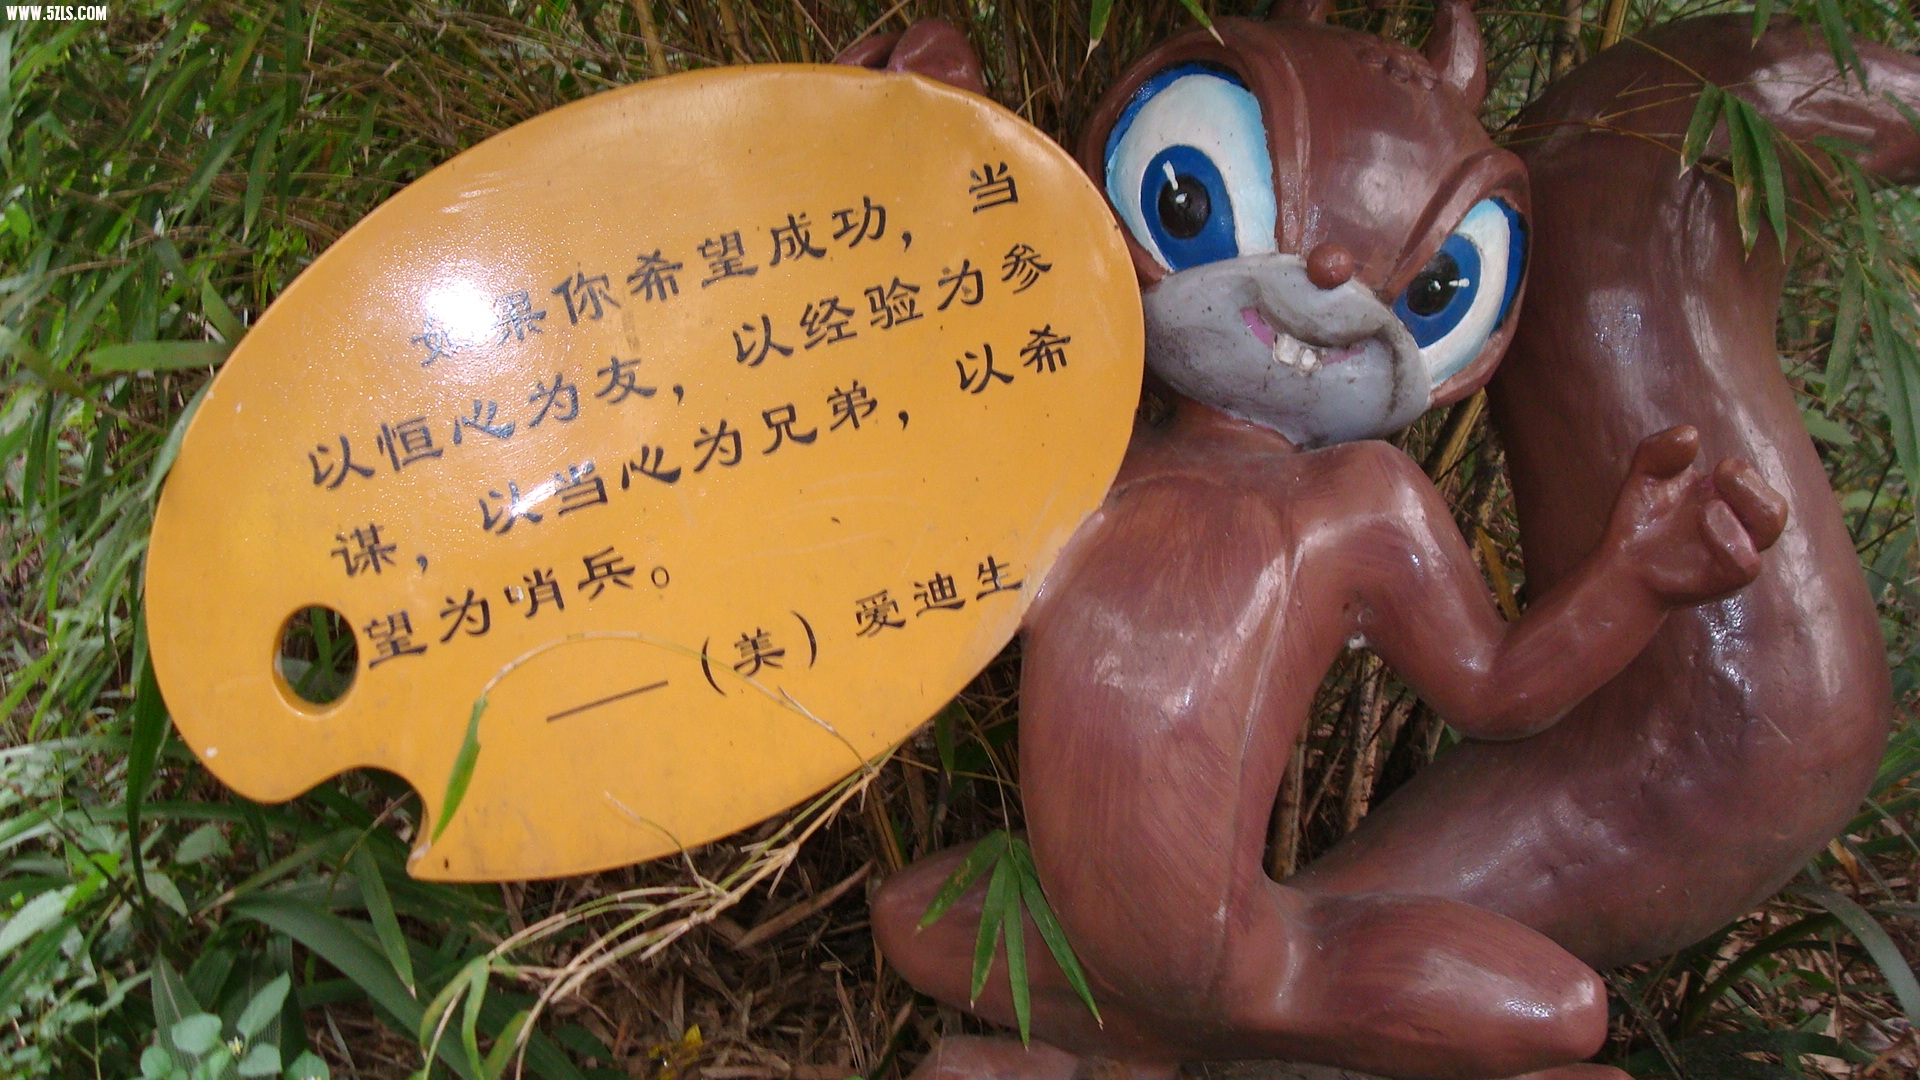 WWW.5ZLS.COM
如果你希望成功，当
以恒心为友，以经验为参
谋，以当心为兄弟，以希
望为哨兵。
——（美）爱迪生